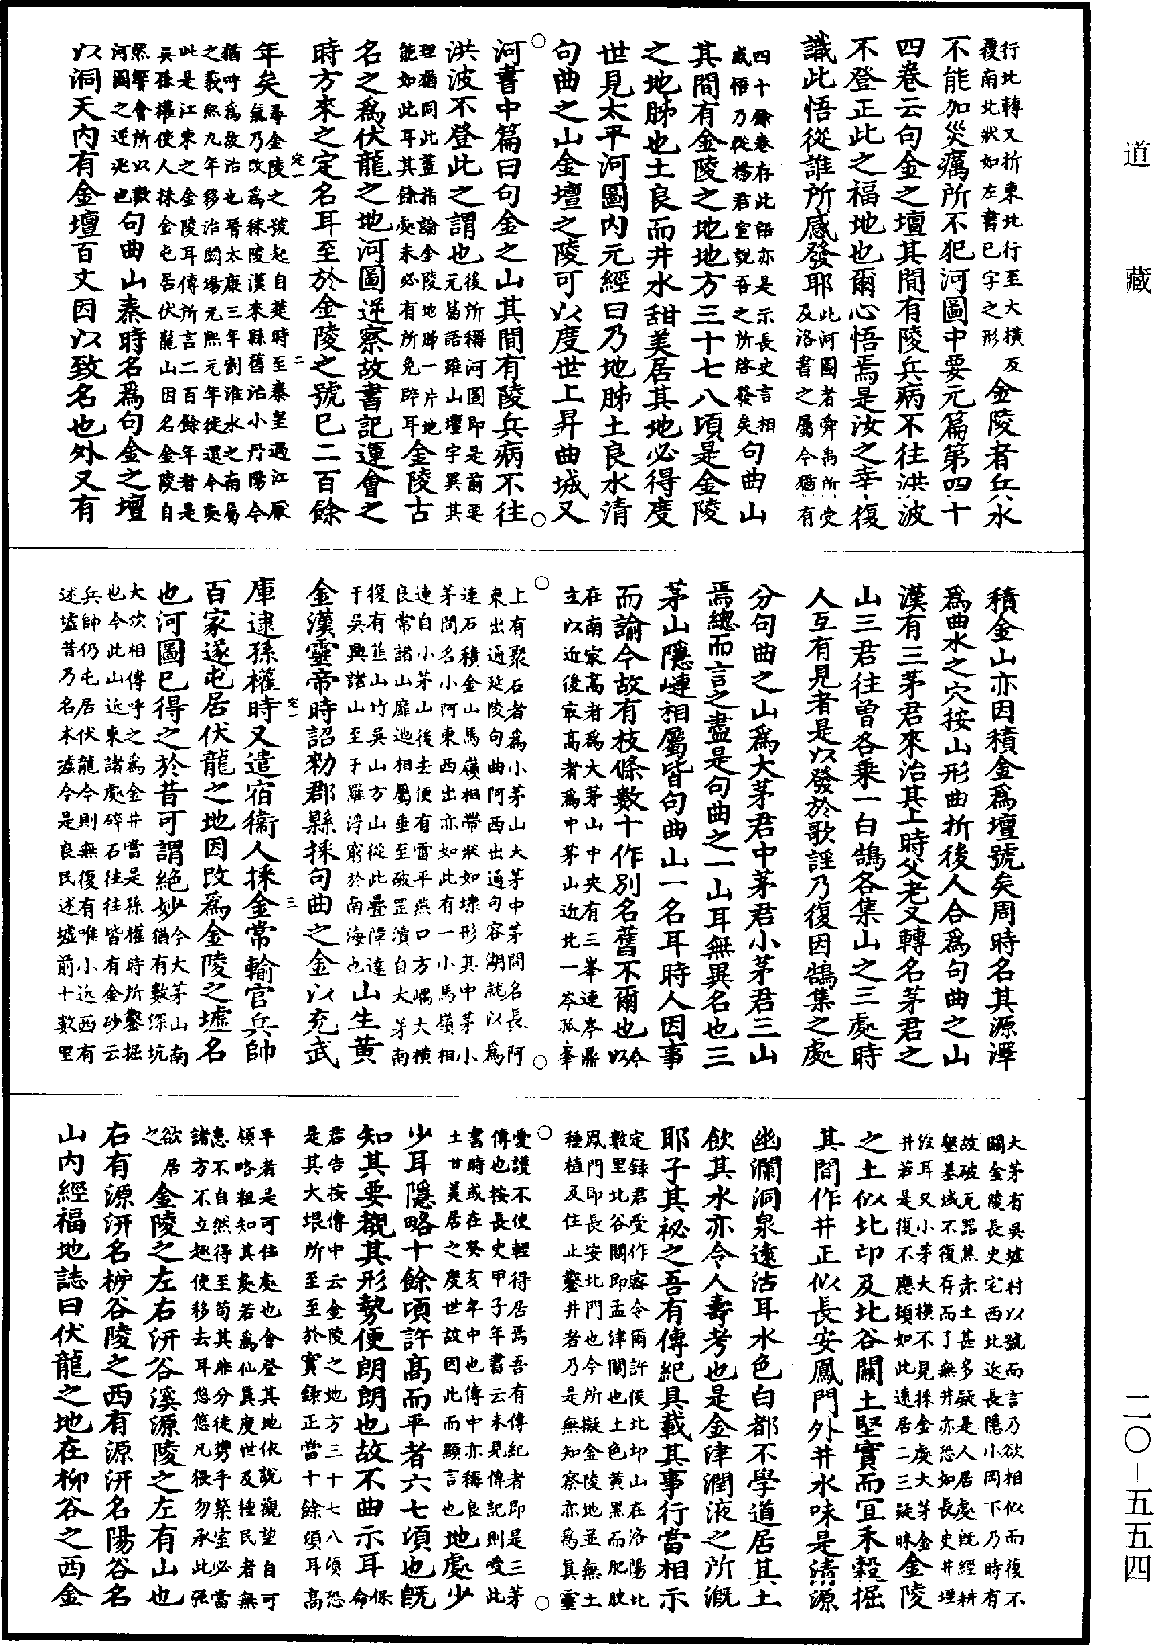 道藏
行北轉又折東北行至大橫反
覆南北狀如左書巳字之形
金陵者兵水
不能加災癘所不犯河圖中要元篇第四十
四卷云句金之壇其間有陵兵病不往洪波
不登正此之福地也爾心悟焉是汝之幸復
識此悟從誰所感發耶
此河圖者舜禹所受
及洛書之屬今猶有
四十餘卷存此語亦是示長史言相
感悟乃從楊君宣說吾之所啓發矣
句曲山
其間有金陵之地地方三十七八頃是金陵
之地肺也土良而井水甜美居其地必得度
世見太平河圖内元經曰乃地肺土良水清
句曲之山金壇之陵可以度世上昇曲城又
河書中篇曰句金之山其間有陵兵病不往
洪波不登此之謂也
後所稱河圖即是前要
元篇語雖山壇字異其
理猶同此蓋指論金陵地肺一片地
能如此耳其餘處未必有所免辟耳
金陵古
名之為伏龍之地河圖逆察故書記運會之
時方來之定名耳至於金陵之號已二百餘
年矣
尋金陵之號起自楚時至秦皇過江厭
氣乃改為秣陵漢來縣舊治小丹陽今
猶呼為故治也晉太康三年割淮水之南屬
之義熙九年移治鬬場元熙元年徙還今處
此是江東之金陵耳傳所言二百餘年者是
吳孫權使人採金屯居伏龍山因名金陵自
然響會所以歎
河圖之逆兆也
句曲山秦時名為句金之壇
以洞天内有金壇百丈因以致名也外又有
積金山亦因積金為壇號矣周時名其源澤
為曲水之穴按山形曲折後人合為句曲之山
漢有三茅君來治其上時父老又轉名茅君之
山三君往曾各乘一白鵠各集山之三處時
人互有見者是以發於歌謡乃復因鵠集之處
分句曲之山為大茅君中茅君小茅君三山
焉總而言之盡是句曲之一山耳無異名也三
茅山隱嶙相屬皆句曲山一名耳時人因事
而諭今故有枝條數十作別名舊不爾也
今
以
在南最高者為大茅山中央有三峯連岑鼎
立以近後最高者為中茅山近北一岑孤峯
上有聚石者為小茅山大茅中茅間名長阿
東出通延陵句曲阿西出通句容湖就以為
連石積金山馬嶺相帶狀如埭形其中茅小
茅間名小阿東西出亦如此有一小馬嶺相
連自小茅山後去便有雷平燕口方嵎大橫
良常諸山靡迤相屬垂至破罡瀆自大茅南
復有韮山竹吳山方山從此疊障達
于吳興諸山至于羅浮窮於南海也
山生黄
金漢靈帝時詔勅郡縣採句曲之金以充武
庫逮孫權時又遣宿衛人採金常輸官兵帥
百家遂屯居伏龍之地因改為金陵之墟名
也河圖已得之於昔可謂絶妙
今大茅山南
猶有數深坑
大坎相傳呼之為金井當是孫權時所鑿掘
也今此山近東諸處碎石往往皆有金砂云
兵帥仍屯居伏龍今則無復有唯小近西有
述墟昔乃名木墟今是良民述墟前十數里
大茅有吳墟村以號而言乃欲相似而復不
關金陵長史宅西北近長隱小岡下乃時有
故破瓦器焦赤土甚多疑是人居處既經耕
墾基域不復存而了無井亦恐知長史井埋
沒耳又小茅大橫不見採金處大茅金
井若是復不應頓如此遠居二三疑昧
金陵
之土似北邙及北谷關土堅實而宜禾穀掘
其間作井正似長安鳳門外井水味是清源
幽瀾洞泉遠沽耳水色白都不學道居其土
飲其水亦令人壽考也是金津潤液之所溉
耶子其祕之吾有傳紀具載其事行當相示
定錄君受作密令爾許侯北邙山在洛陽北
數里北谷關即孟津關也土色黄黑而肥腴
鳳門即長安北門也今所擬金陵地並無土
種植及住止鑿井者乃是無知察亦為真靈
愛護不使輕得居焉吾有傳紀者即是三茅
傳也按長史甲子年書云未見傳記則愛此
書時或在癸亥年中也傳中亦稱良
土甘美居之度世故因此而顯言也
地處少
少耳隱略十餘頃許高而平者六七頃也既
知其要覩其形勢便朗朗也故不曲示耳
保
命
君告按傳中云金陵之地方三十七八頃恐
是其大垠所至至於實錄正當十餘頃耳高
平者是可住處也會登其地依說觀望自可
領略粗知其處若為仙真度世及種民者無
患不自然得至苟其非分徒勞手築室必當
諸方不立趣使移去耳悠悠凡猥勿承此强
欲居
之
金陵之左右汧谷溪源陵之左有山也
右有源汧名栁谷陵之西有源汧名陽谷名
山内經福地誌曰伏龍之地在柳谷之西金
二〇-五五四